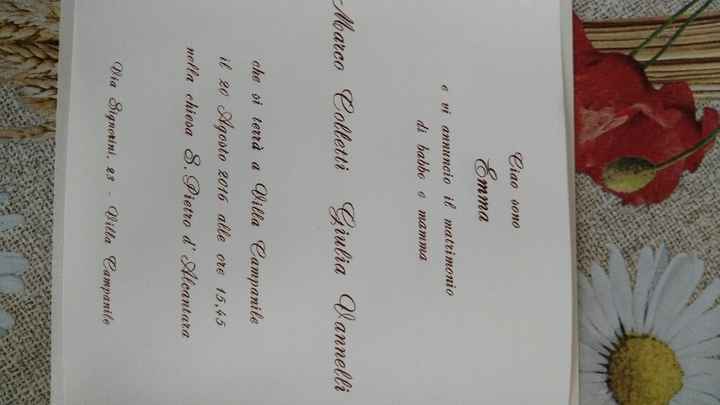 Ciao sono
Emma
e vi annuncio il matrimonio
di babbo e mamma
Marco Colletti Giulia Vannelli
che si terrà a Villa Campanile
il 20 Agosto 2016 alle ore 15,45
nella chiesa S. Pietro d'Alcantara
Via Signorini, 23 - Villa Campanile